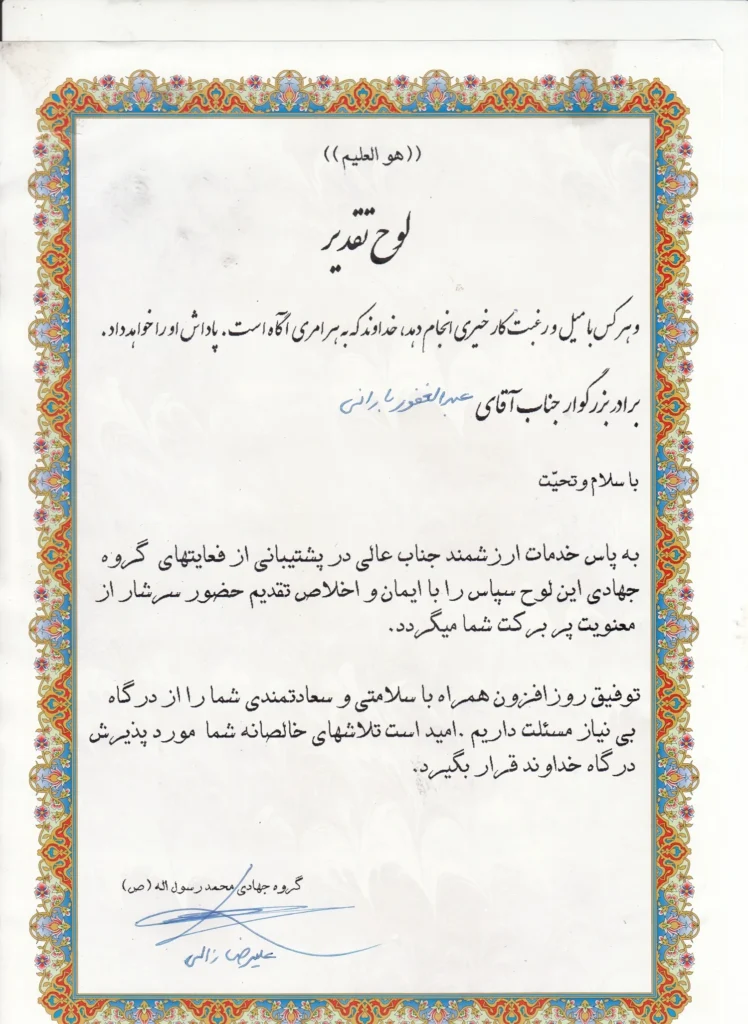 ((هو العلیم))
لوح تقدیر
و هر کس با میل و رغبت کار خیری انجام دهد، خداوند که به هر امری آگاه است. پاداش او را خواهد داد.
برادر بزرگوار جناب آقای عبدالغفور بارانی
با سلام و تحیّت
به پاس خدمات ارزشمند جناب عالی در پشتیبانی از فعایتهای گروه
جهادی این لوح سپاس را با ایمان و اخلاص تقدیم حضور سرشار از
معنویت پر برکت شما میگردد.
توفیق روزافزون همراه با سلامتی و سعادتمندی شما را از درگاه
بی نیاز مسئلت داریم .امید است تلاشهای خالصانه شما مورد پذیرش
درگاه خداوند قرار بگیرد.
گروه جهادی محمد رسول اله (ص)
علیرضا